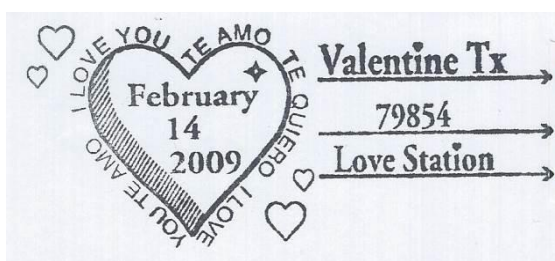 I LOVE YOU TE AMO TE QUIERO I LOVE YOU TE AMO
February
14
2009
Valentine Tx
79854
Love Station